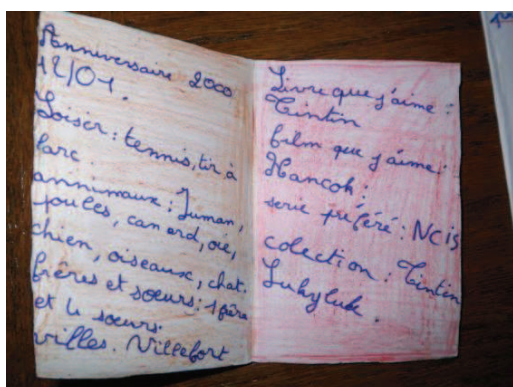 Anniversaire 2000
12/01.
Loisir : tennis, tir à
l'arc.
annimaux : Juman,
poules, canard, oie,
chien, oiseaux, chat.
frères et sœurs : 1 frère
et 4 sœurs.
villes. Villefort
Livre que j'aime :
Tintin
film que j'aime :
Hancoh ;
serie préféré : NCIS
colection : Tintin
Lukyluk.